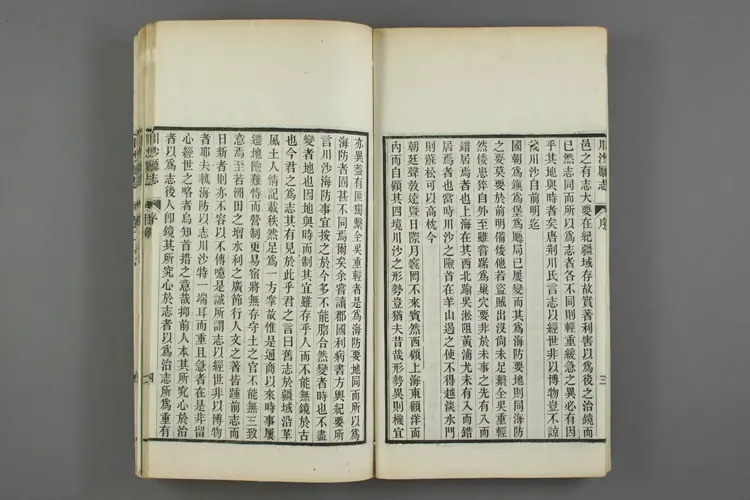 川沙廳志
序
三
邑之有志大要在紀疆域存故實著利害以爲後之治鏡而
已然志同而所以爲志者各不同則輕重緩急之異必有因
乎其地與時者矣唐荆川氏言志以經世非以博物豈不諒
哉川沙自前明迄
國朝爲鎭爲堡爲廳局已屢變而其爲海防要地則同海防
之要莫要於前明備倭他若盜賊出沒尙未足繫全吳重輕
然倭患猝自外至雖嘗踞爲巢穴要非於未事之先有入而
錯居焉者也上海在其西北踰吳淞阻黃浦尤未有入而錯
居焉者也當時川沙之險首在羊山遏之使不得越淡水門
則蘇松可以高枕今
朝廷聲敎遠曁日際月窟罔不來賓然西顧上海東顧洋面
內而自顧其四境川沙之形勢豈猶夫昔哉形勢異則機宜
亦異蓋有匪獨繫全吳重輕者是爲海防要地同而所以爲
海防者固甚不同焉矣余嘗讀郡國利病書方輿紀要所
言川沙海防事宜按之於今多不能脗合然變者時也不盡
變者地也因地與時而制其宜雖存乎人而不能無鏡於古
也今君之爲志其有見於此乎君之言曰舊志於疆域沿革
風土人情記載秩然足爲一方掌故惟是通商以來時事屢
遷地險難恃而營制更易宿將無存守土之官不能無三致
意焉至若洲田之增水利之廣節行人文之著皆踵前志而
日新者則亦不容以不傳噫是誠所謂志以經世非以博物
者耶夫執海防以志川沙特一端耳而重且急者在是非留
心經世之略者烏知首措之意哉抑前人本其所究心於治
者以爲志後人卽鏡其所究心於志者以爲治志所爲重有
川沙廳志
序
四